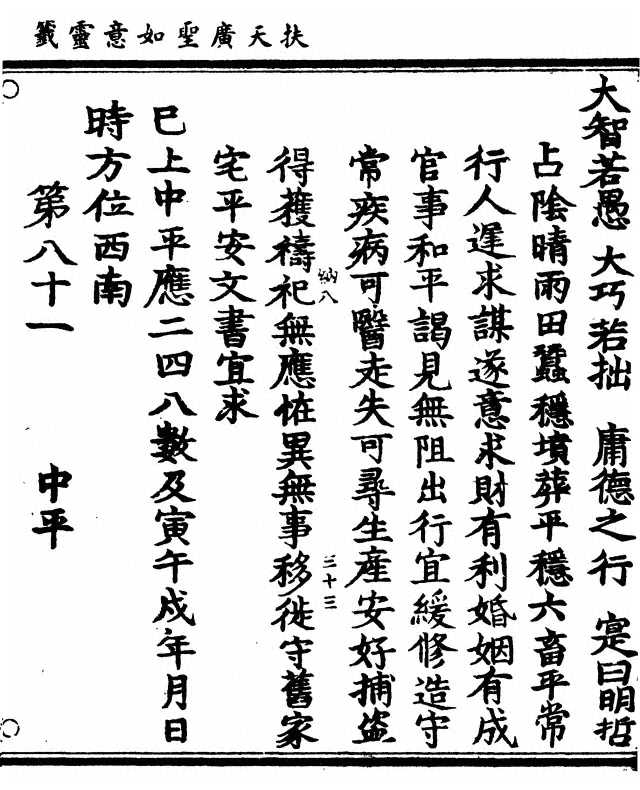 扶天廣聖如意靈籤
大智若愚 大巧若拙 庸德之行 寔曰明哲
占陰晴雨田蠶穩墳葬平穩六畜平常
行人遲求謀遂意求財有利婚姻有成
官事和平謁見無阻出行宜緩修造守
常疾病可醫走失可尋生産安好捕盜
納八
三十三
得獲禱祀無應恠異無事移徙守舊家
宅平安文書宜求
巳上中平應二四八數及寅午戌年月日
時方位西南
第八十一 中平